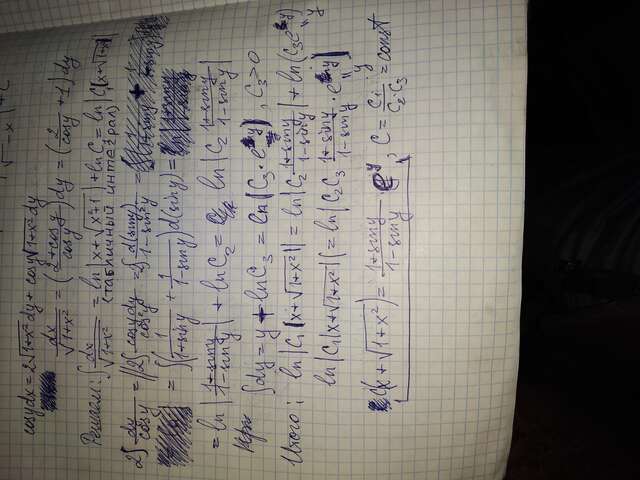 cosydx = 2√(1+x²)dy + cosy√(1+x²)dy
dx/√(1+x²) = ((2+cosy)/cosy)dy = (2/cosy + 1)dy
Решаем: ∫dx/√(1+x²) = ln|x+√(x²+1)| + lnC₁ = ln|C₁(x+√(1+x²))|
(табличный интеграл)
2∫dy/cosy = 2∫cosydy/cos²y = 2∫d(siny)/(1-sin²y) =
= ∫(1/(1+siny) + 1/(1-siny))d(siny) =
= ln|(1+siny)/(1-siny)| + lnC₂ = ln|C₂ (1+siny)/(1-siny)|
∫dy = y + lnC₃ = ln(C₃·e^y), C₃>0
Итого: ln|C₁(x+√(1+x²))| = ln|C₂ (1+siny)/(1-siny)| + ln(C₃e^y)
ln|C₁(x+√(1+x²))| = ln|C₂C₃ (1+siny)/(1-siny) · e^y|
C(x+√(1+x²)) = (1+siny)/(1-siny) e^y, C = C₁/(C₂·C₃) = const